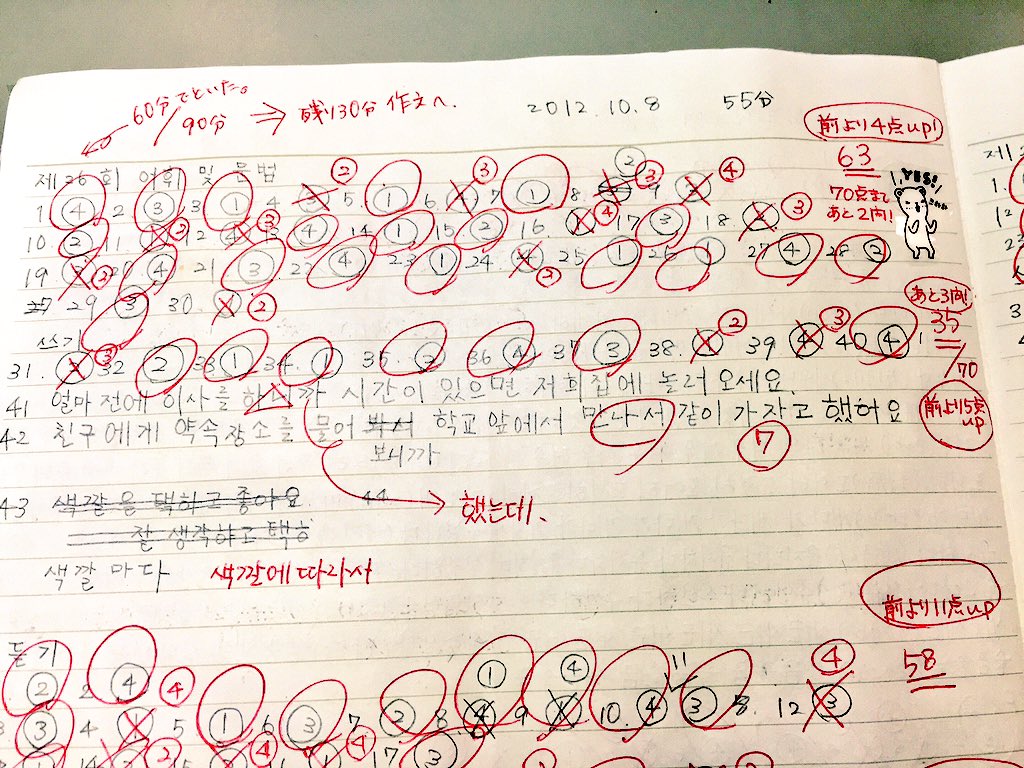 60分でといた。
90分 ⇒ 残り30分 作文へ. 2012.10.8 55分
前より4点up!
제26회 어휘 및 문법 63
YES!
70点まで
あと2問!
1 ④ 2 ③ 3 ① 4 ② 5. ① 6. ③ 7 ① 8. ③ 9 ④
10. ② 11 ② 12 ③ 13 ④ 14 ① 15 ② 16. ④ 17 ③ 18. ③
19 ③ 20 ④ 21 ③ 22 ④ 23 ① 24. ② 25 ① 26 ① 27 ④ 28 ②
29 ③ 30. ②
あと3問!
쓰기 35/70
31. ③ 32 ② 33 ① 34. ① 35. ③ 36 ④ 37 ③ 38. ② 39 ③ 40 ④
41 얼마 전에 이사를 하니까 시간이 있으면 저희집에 놀러 오세요.
42 친구에게 약속장소를 물어 봐서 학교 앞에서 만나서 같이 가자고 했어요
보니까
7
前より5点up
43. 색깔을 택하고 좋아요 44.
했는데、
잘 생각하고 택하
색깔 마다 색깔에 따라서
前より11点up
듣기 58
② 2 ④
3 ③ 4 ④ 5 ① 6 ③ 7 ② 8 ① 9 ④ 10. ④ 11 ③ 12 ④